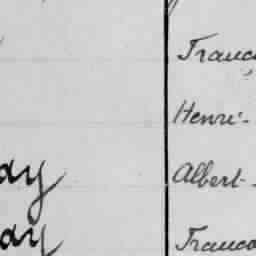 Franc
Henri-
ay Albert-
ay Franco